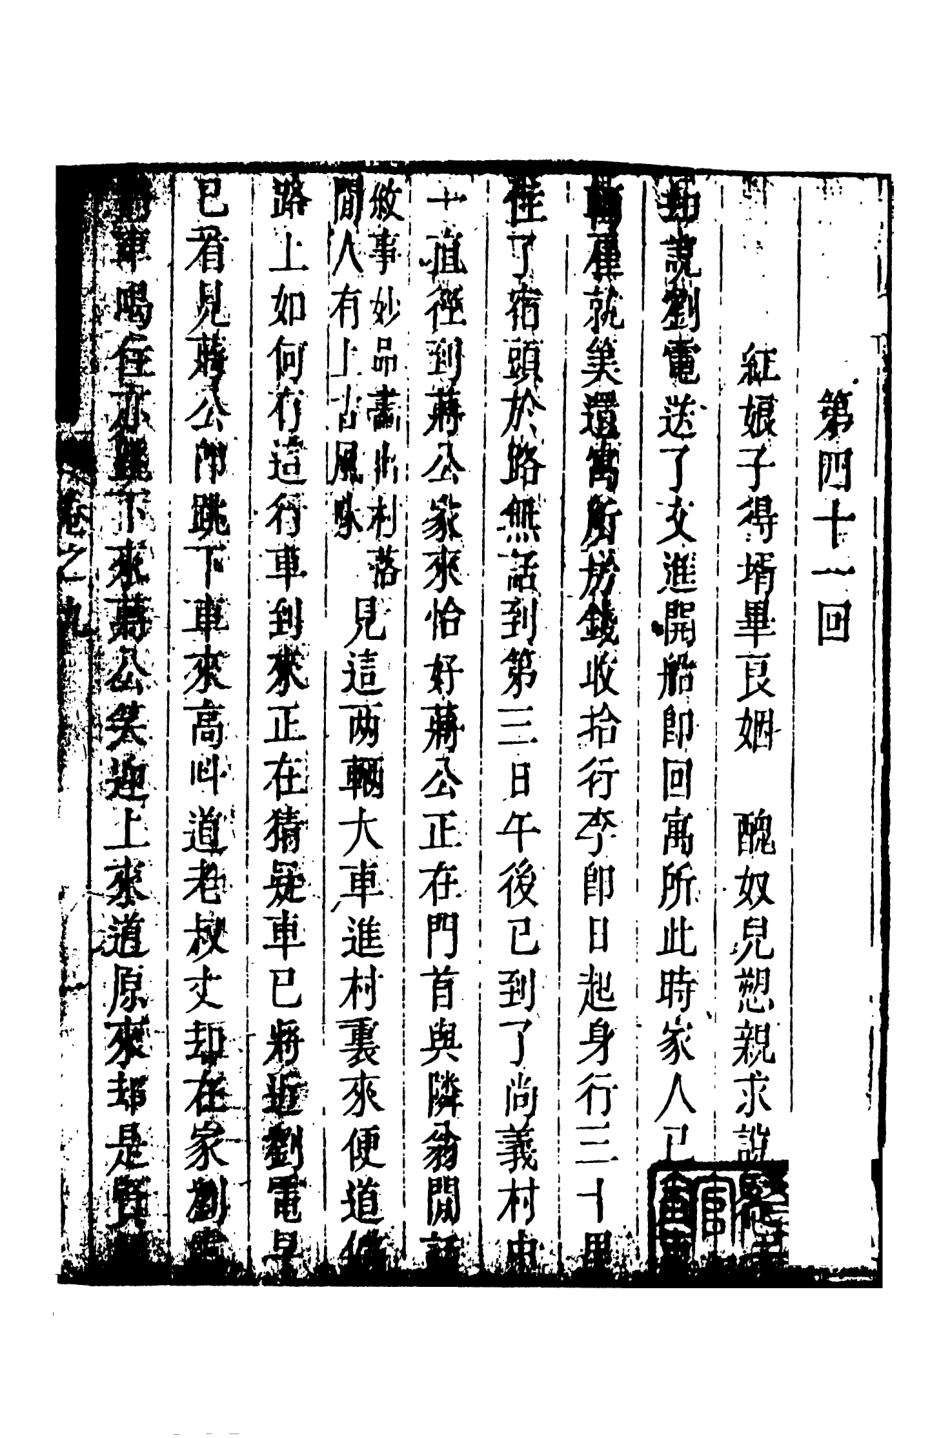 第四十一回
紅娘子得壻畢良姻　醜奴兒愬親求說
却說劉電送了文進開船卽回寓所此時家人已
雇就筭還寓所房錢收拾行李卽日起身行三十里
住了宿頭於路無話到第三日午後已到了尚義村中
一直徑到蔣公家來恰好蔣公正在門首與隣翁閒話
敘事妙品畵出村落
閒人有上古風味
見這两輛大車進村裏來便道
路上如何有這行車到來正在猜疑車已將近劉電早
已看見蔣公卽跳下車來高叫道老叔丈却在家劉
車喝住亦跳下來蔣公笑迎上來道原來却是賢
卷之九